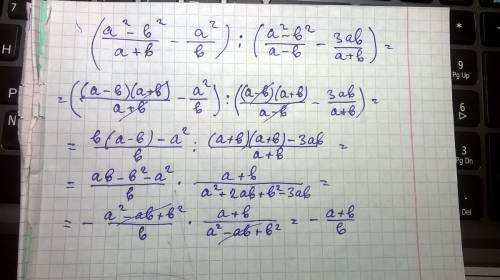 (a² - b²/a + b - a²/b) : (a² - b²/a - b - 3ab/a + b) =
= ((a - b)(a + b)/a + b - a²/b) : ((a - b)(a + b)/a - b - 3ab/a + b) =
= b(a - b) - a²/b : (a + b)(a + b) - 3ab/a + b =
= ab - b² - a²/b · a + b/a² + 2ab + b² - 3ab =
= - a² - ab + b²/b · a + b/a² - ab + b² = - a + b/b
H
N
9
Pg Up
6
3
Pg Dn
Del